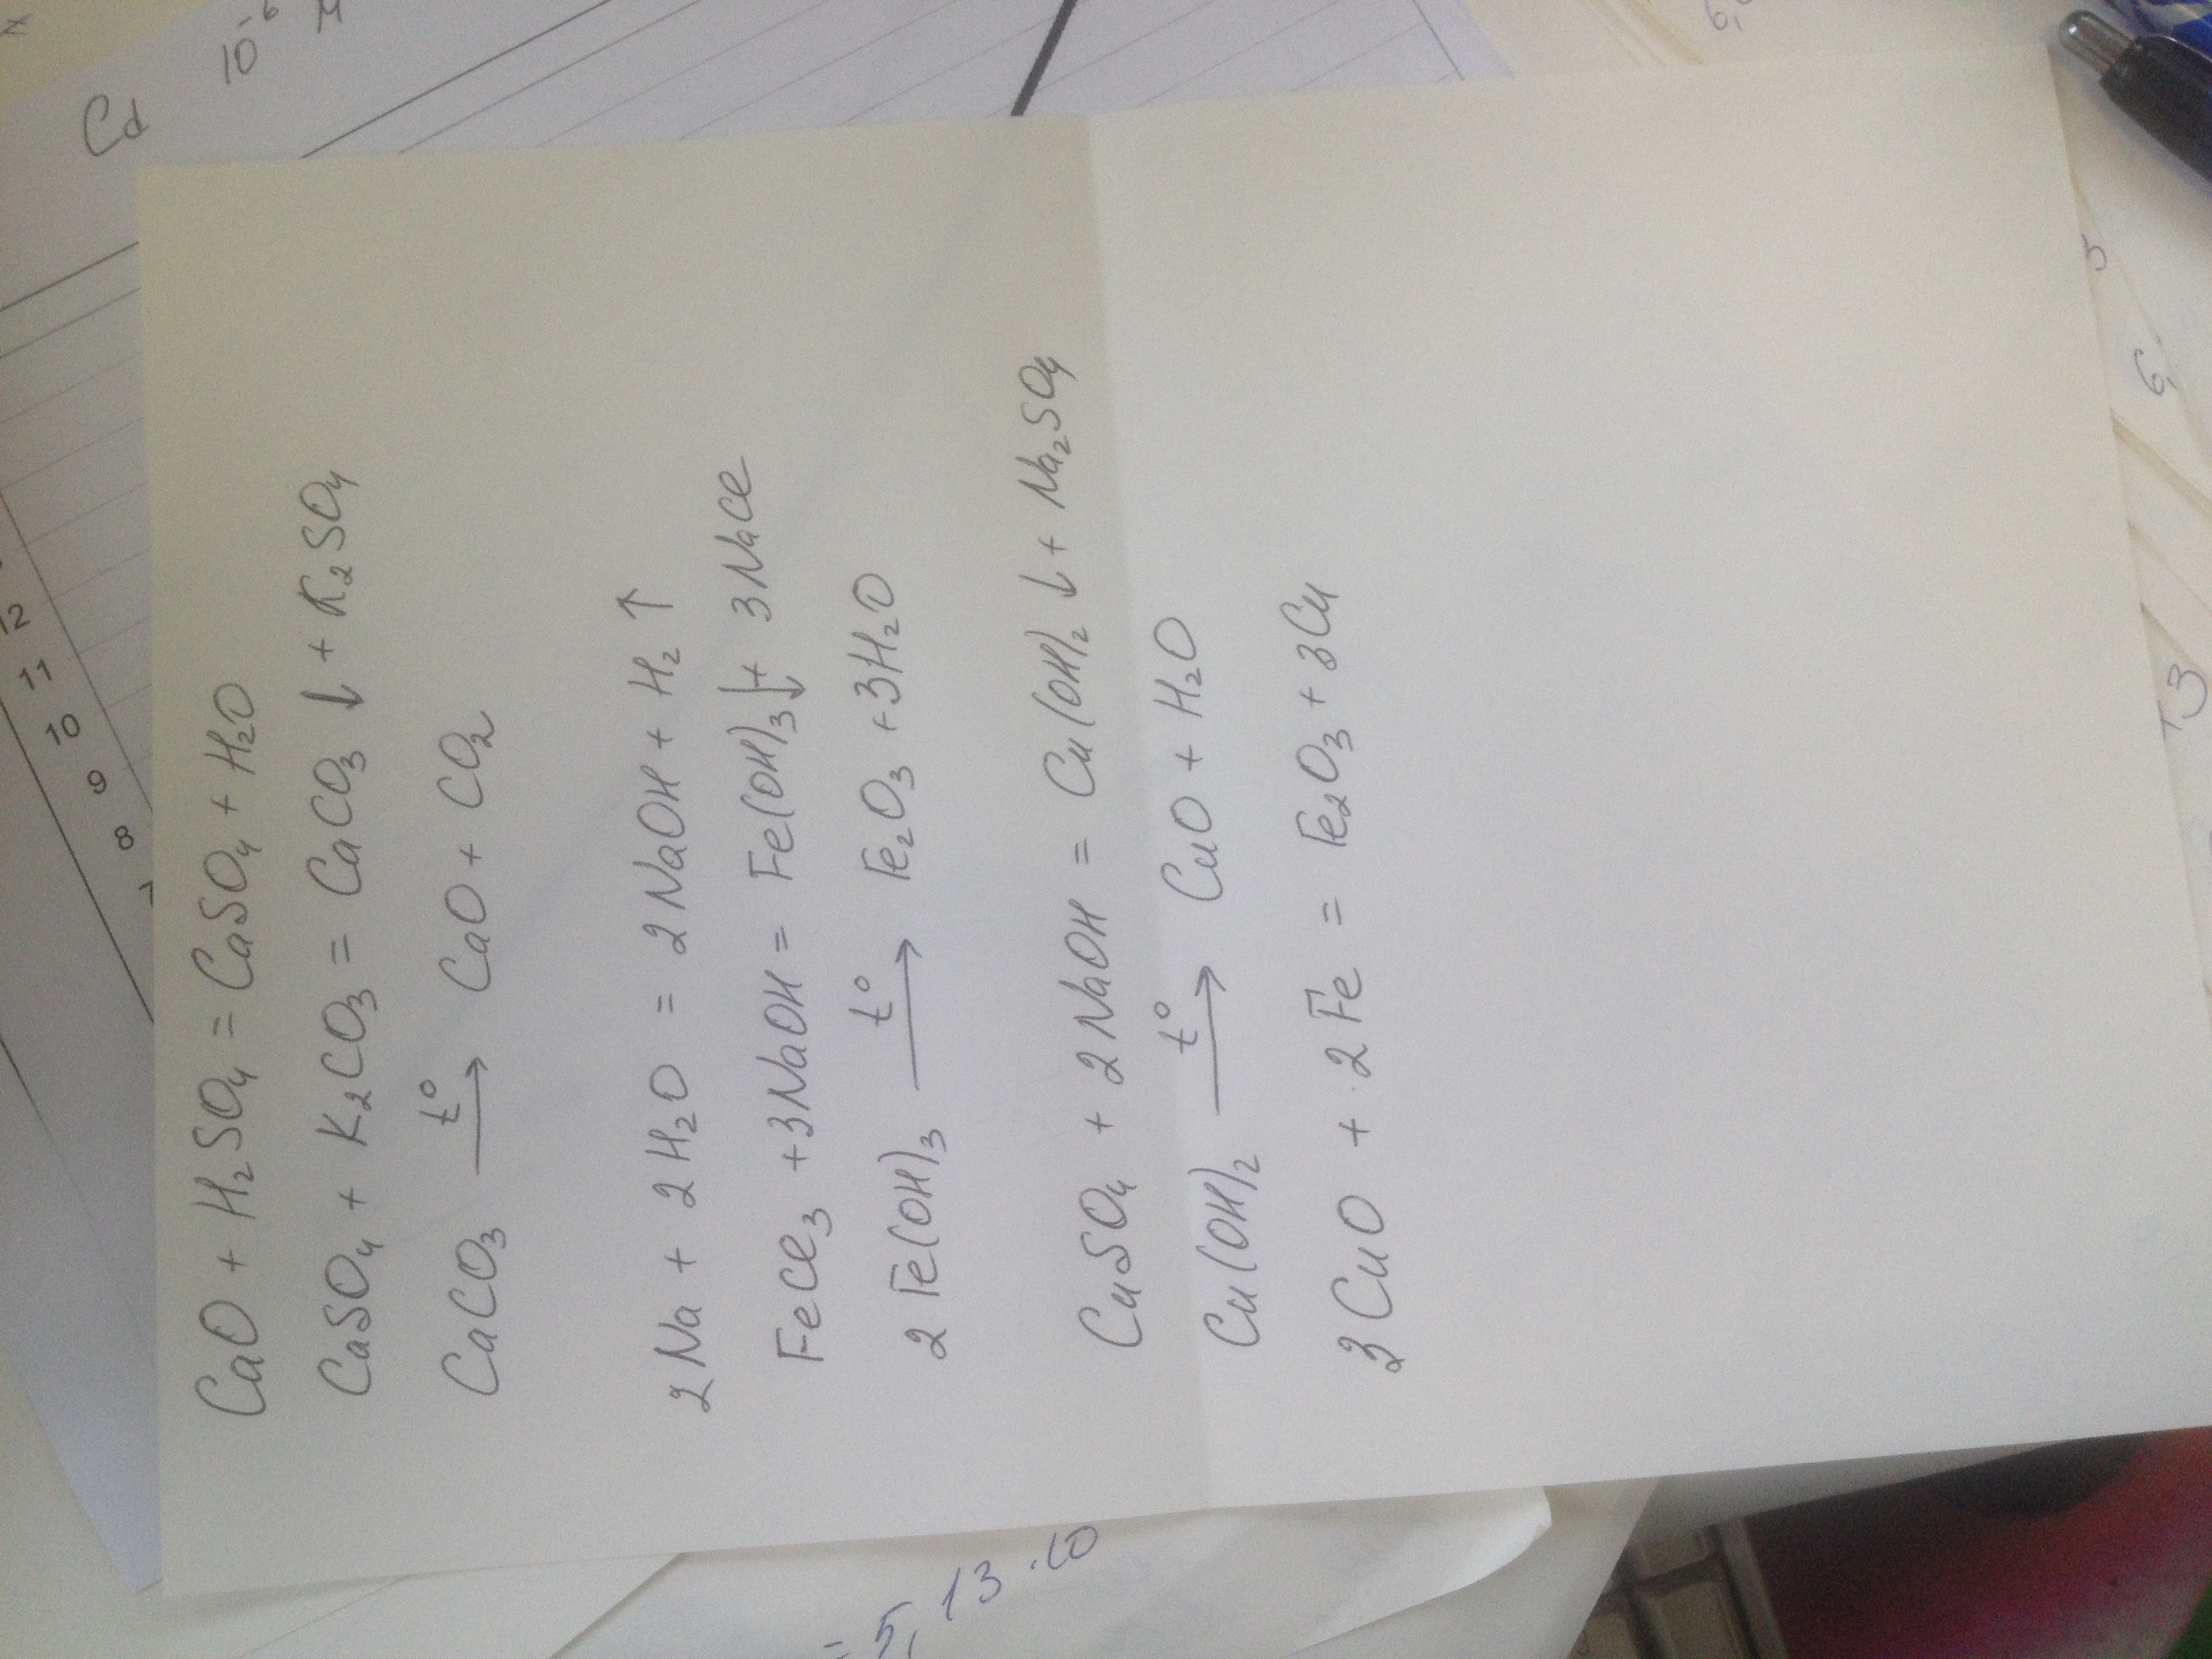 Cd
10⁻⁶
12
11
10
9
8
7
CaO + H₂SO₄ = CaSO₄ + H₂O
CaSO₄ + K₂CO₃ = CaCO₃ ↓ + K₂SO₄
CaCO₃ —t°→ CaO + CO₂
2Na + 2H₂O = 2NaOH + H₂ ↑
FeCl₃ + 3NaOH = Fe(OH)₃↓ + 3NaCl
2Fe(OH)₃ —t°→ Fe₂O₃ + 3H₂O
CuSO₄ + 2NaOH = Cu(OH)₂ ↓ + Na₂SO₄
Cu(OH)₂ —t°→ CuO + H₂O
3CuO + 2Fe = Fe₂O₃ + 3Cu
= 5,13·10